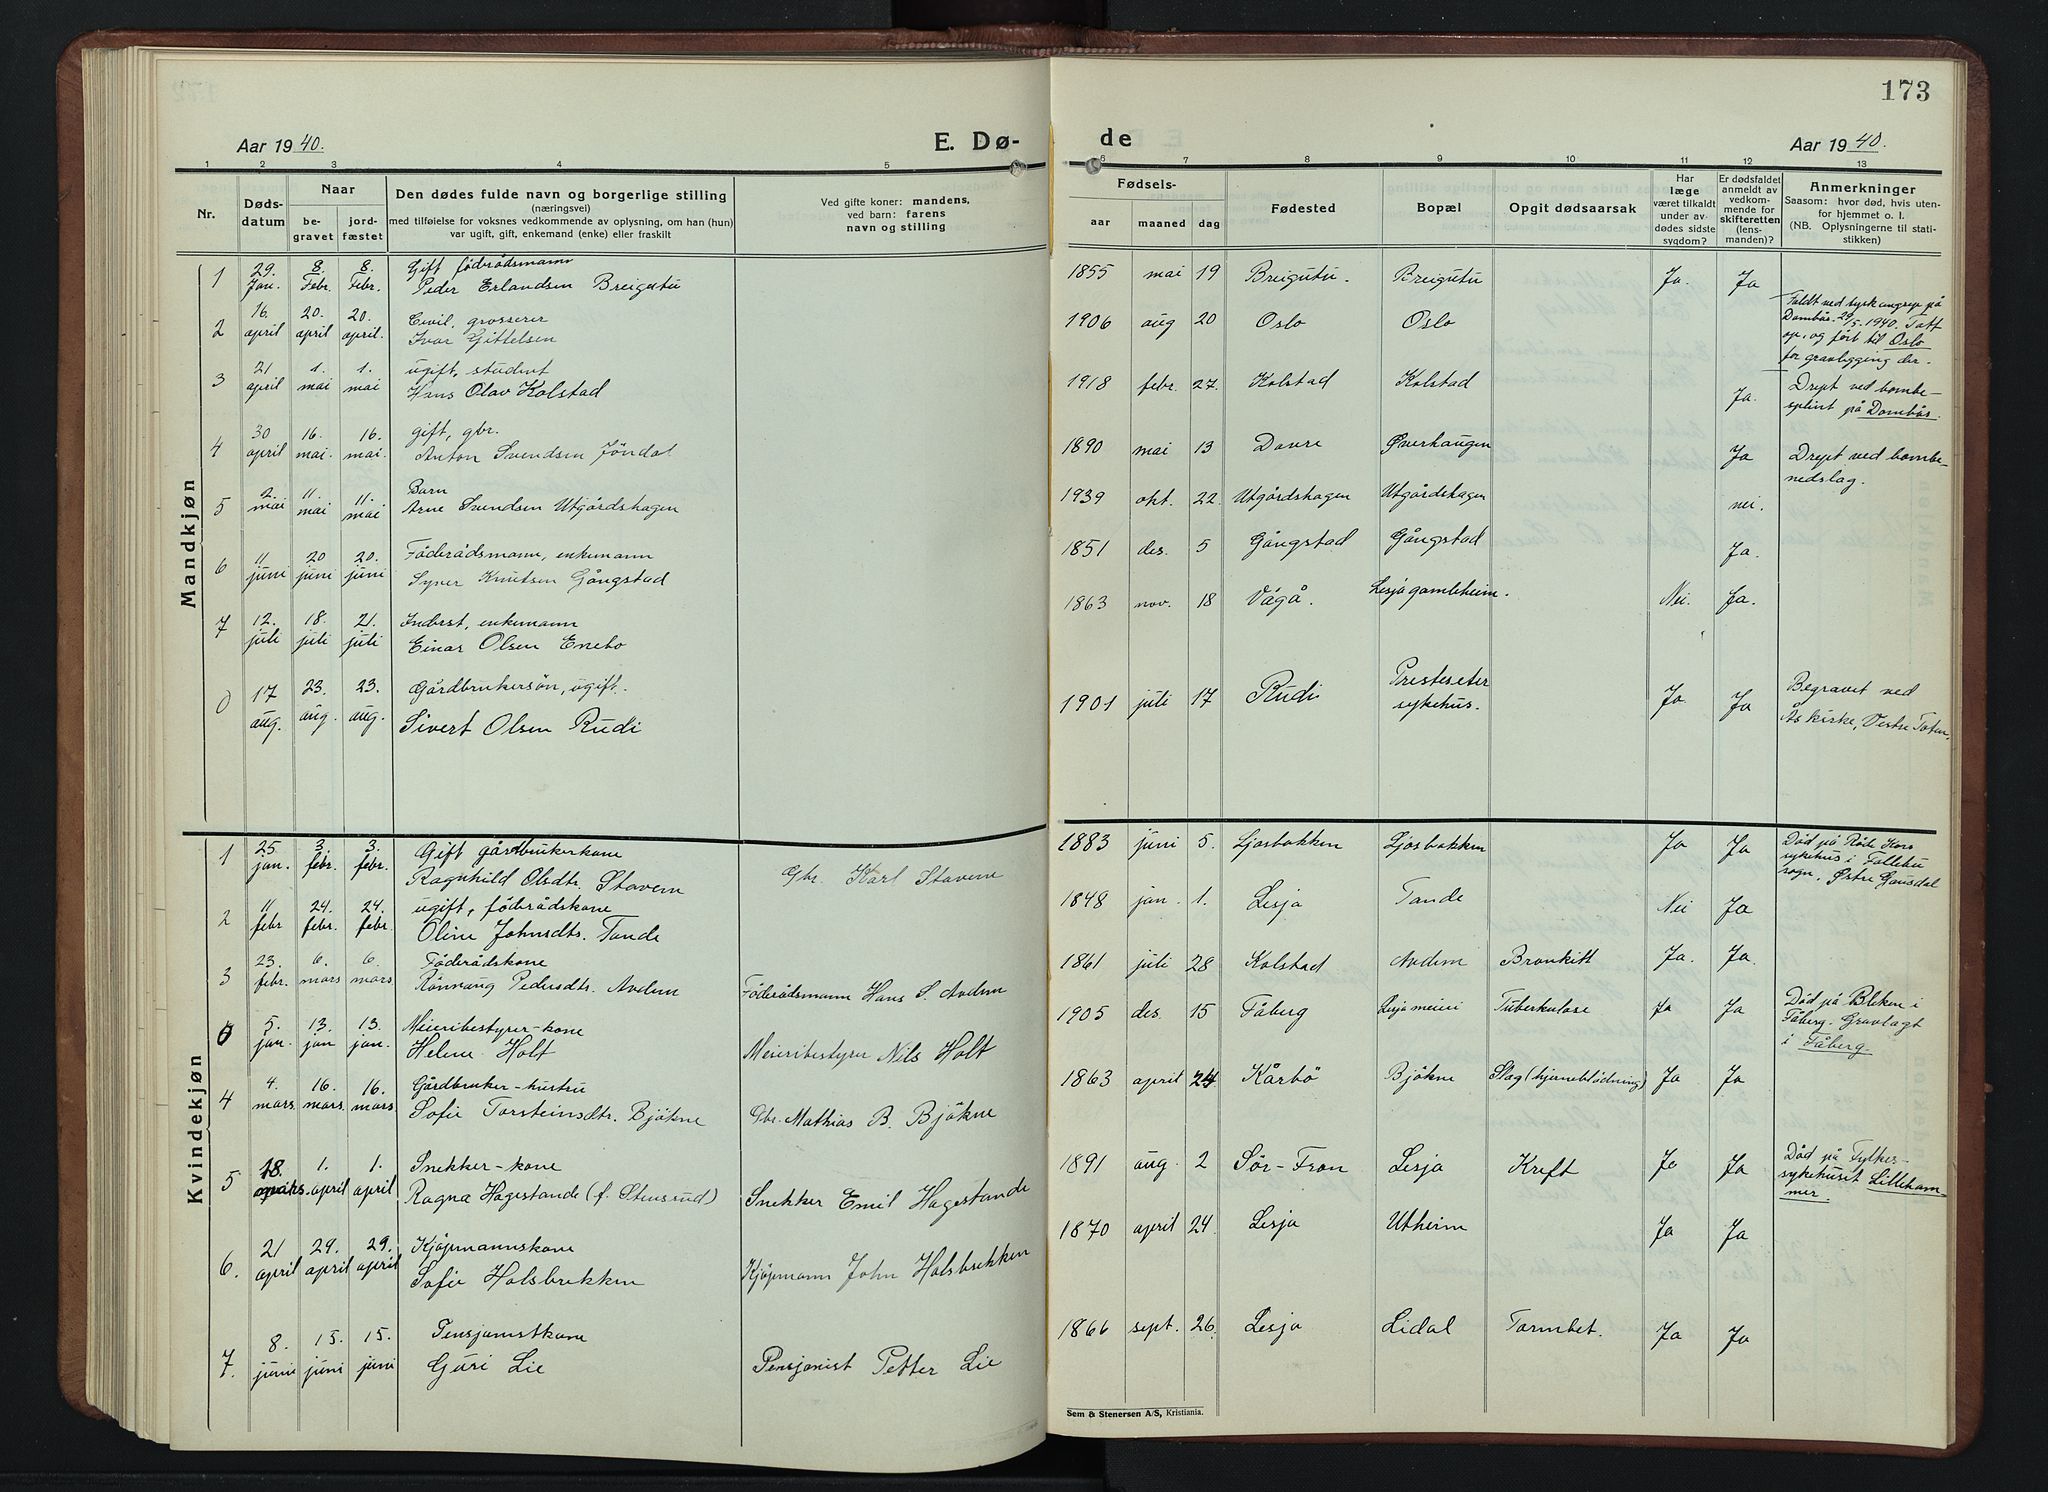 173
Aar 1940.
E. Dø-
de
Aar 1940.
1 2 3 4 5 6 7 8 9 10 11 12 13
Nr.
Døds-
datum
Naar
be-
gravet
jord-
fæstet
Den dødes fulde navn og borgerlige stilling
(næringsvei)
med tilføielse for voksnes vedkommende av oplysning, om han (hun)
var ugift, gift, enkemand (enke) eller fraskilt
Ved gifte koner: mandens,
ved barn: farens
navn og stilling
Fødsels-
aar maaned dag
Fødested
Bopæl
Opgit dødsaarsak
Har
læge
været tilkaldt
under av-
dødes sidste
sygdom?
Er dødsfaldet
anmeldt av
vedkom-
mende for
skifteretten
(lens-
manden)?
Anmerkninger
Saasom: hvor død, hvis uten-
for hjemmet o. l.
(NB. Oplysningerne til stati-
stikken)
Mandkjøn
1 29. Jan. 8. Febr. 8. Febr. Gift föderådsmann
Peder Erlandsen Breigutu
1855 mai 19 Breigutu. Breigutu Ja. Ja
2 16. april 20. april 20. april. Civil, grosserer
Ivar Gittelsen
1906 aug 20 Oslo Oslo
Faldt ved tysk angrep på
Dombås. 29/5. 1940. Tatt
op, og ført til Oslo
for gravlegging der.
3 21 april 1. mai 1. mai ugift, student
Hans Olav Kolstad
1918 febr. 27. Kolstad Kolstad Ja.
Drept ved bombe-
splint på Dombås.
4 30 april 16. mai. 16. mai. gift, gbr.
Anton Svendsen Jöndal
1890 mai 13 Dovre Øverhaugen Ja
Drept ved bombe-
nedslag.
5 2. mai 11. mai 11. mai Barn
Arne Svendsen Utgårdshagen
1939 okt. 22. Utgårdshagen Utgårdshagen nei.
6 11 juni 20 juni 20. juni Föderådsmann, enkemann
Syver Knutsen Gångstad
1851 des. 5 Gångstad Gångstad Ja.
7 12. juli 18. juli 21. juli Inderst, enkemann
Einar Olsen Enebo
1863 nov. 18 Vågå. Lesja gamleheim. Nei. Ja.
0 17 aug. 23. aug. 23. aug. Gårdbrukersön, ugift.
Sivert Olsen Rudi
1901 juli 17 Rudi Presteseter
sykehus. Ja. Ja
Begravet ved
Ås kirke, Vestre Toten.
Kvindekjøn
1 25. jan. 3. febr. 3. febr. Gift gårdbrukerkone
Ragnhild Olsdtr. Stavem
Gbr. Karl Stavem
1883 juni 5. Ljosbakken Ljosbakken Ja Ja
Död på Röde Kors
sykehus i Follebu
sogn, Østre Gausdal
2 11 febr 24. febr. 24. febr. ugift, föderådskone
Oline Johnsdtr. Tande
1848 jan. 1. Lesja Tande Nei Ja
3 23. febr. 6. mars 6. mars. Föderådskone
Rönnaug Pedersdtr. Avdem
Föderådsmann Hans S. Avdem
1861 juli 28 Kolstad Avdem Bronkitt Ja. Ja.
0 5. jan. 13. jan 13. jan. Meieribestyrer-kone
Helene Holt
Meieribestyrer Nils Holt
1905 des. 15 Fåberg Lesja meieri Tuberkulose Ja Ja
Död på Bleken i
Fåberg. Gravlagt
i Fåberg.
4 4. mars. 16. mars. 16. mars Gårdbruker-hustru
Sofie Torsteinsdtr. Bjökne
Gbr. Mathias B. Bjökne
1863 april 24 Kårbö Bjökne Slag (hjerneblödning) Ja Ja
5 18. mars. 1. april 1. april Snekker-kone
Ragna Hagestande (f. Stensrud)
Snekker Emil Hagestande
1891 aug. 2 Sör-Fron Lesja Kreft Ja Ja
Död på Fylkes-
sykehuset Lilleham-
mer.
6. 21 april 29. april 29. april Kjöpmannskone
Sofie Holsbrekken
Kjöpmann John Holsbrekken
1870 april 24. Lesja Utheim Ja Ja
7. 8. juni 15. juni 15. juni Pensjonistkone
Guri Lie
Pensjonist Petter Lie
1866 sept. 26. Lesja Lidal Tarmbet. Ja Ja
Sem & Stenersen A/S, Kristiania.